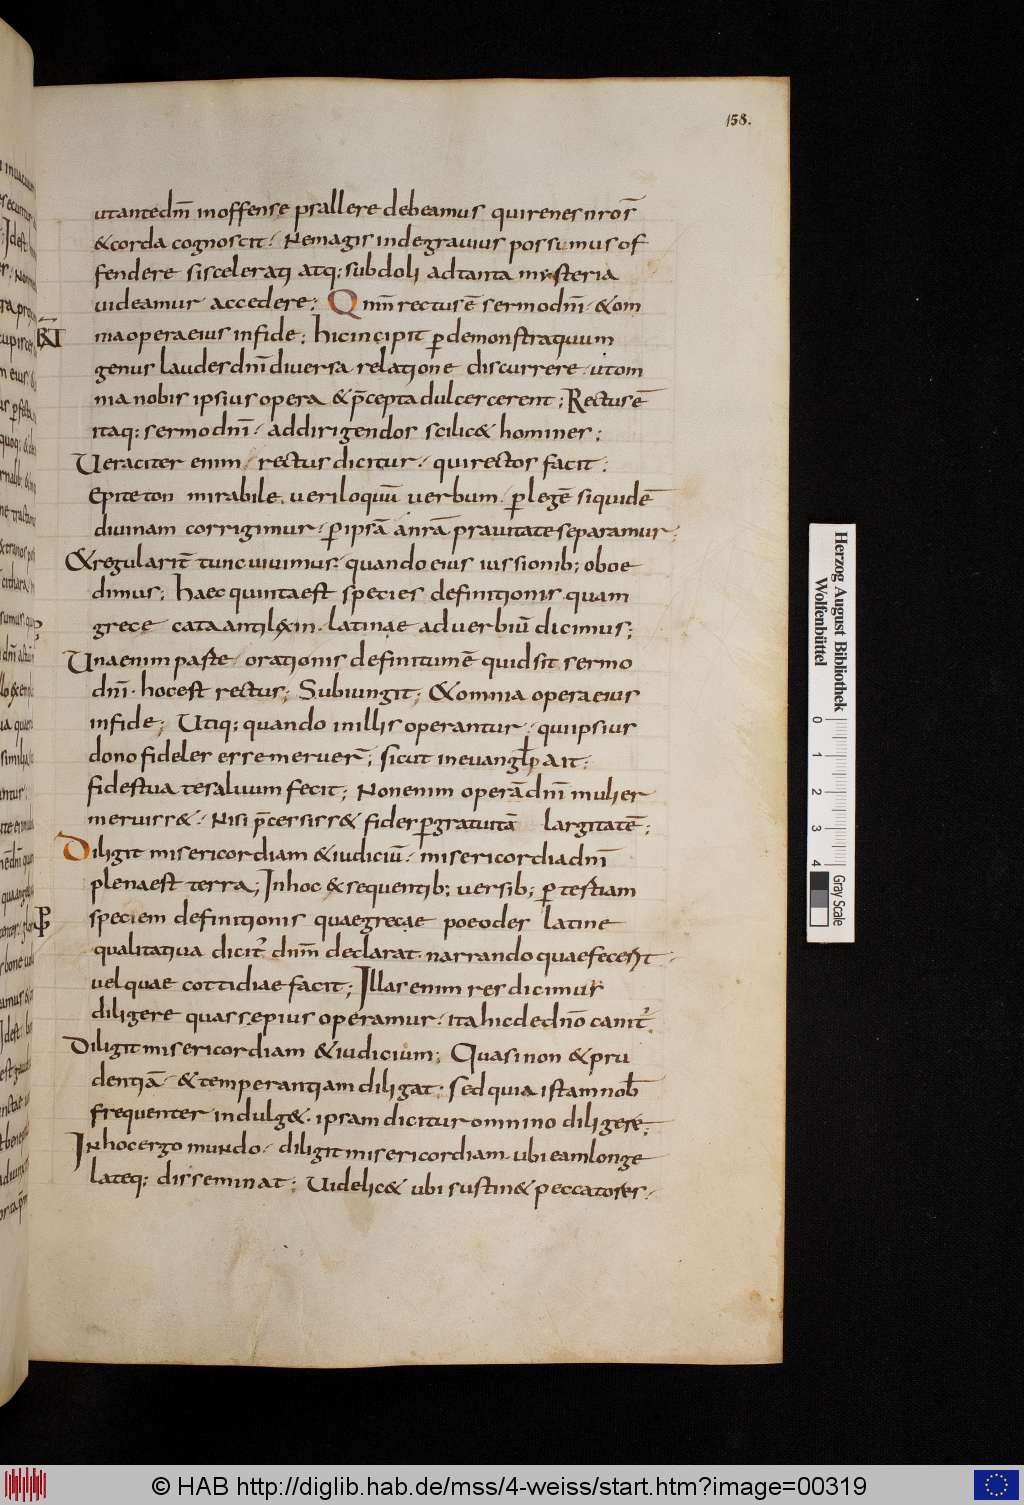 158.
utantedn̄m inoffense psallere debeamus quirenesnr̄os
&corda cognoscit. Nemagis indegravius possumusof
fendere sisceleratị atq; subdoli adtanta mysteria
uideamur accedere; Qm̄m rectusē sermodn̄i. &om
niaoperaeius infide; hicincipit ꝑdemonstratiuum
genus laudesdn̄idiuersa relatione discurrere. utom
nia nobis ipsius opera &p̄cepta dulcescerent; Rectusē
itaq; sermodn̄i. addirigendos scilic& homines;
Veraciter enim. rectus dicitur. quirectos facit.
Epiteton mirabile. ueriloquū uerbum. ꝑlegē siquidē
diuinam corrigimur. ꝑipsā anr̄a prauitate separamur;
&regularit̄ tunc uiuimus. quandoeius iussionib; oboe
dimus; haec quintaest species definitionis quam
grece cataantilexin. latinae aduerbiū dicimus;
Vnaenim parte. orationis definitumē quid sit sermo
dn̄i. hocest rectus; Subiungit; &omnia opera eius
infide; Utiq; quando inillis operantur. quiipsius
dono fideles esse meruer̄; sicut ineuangł ait;
fidestua tesaluum fecit; Nonenim operā dn̄i mulier
meruiss&. Nisi p̄cessiss& fides ꝑgratuitā largitatē;
Diligit misericordiam &iudiciū. misericordiadn̄i
plenaest terra; Inhoc &sequentib; uersib; ꝑ testiam
speciem definitionis quaegrecae poeodes latine
qualitatiua dicit̄ dn̄m declarat. narrando quaefecerit
uelquae cottidiae facit; Illas enim res dicimus
diligere quas sepius operamur. ita hicdedn̄o canit̄.
Diligit misericordiam &iudicium; Quasi non &pru
dentiā. &temperantiam diligat. sed quia istam nob̄
frequenter indulg&. ipsam dicitur omnino diligere;
Inhocergo mundo. diligit misericordiam. ubi eamlonge
lateq; disseminat; Uidelic& ubi sustin& peccatores.
Herzog August Bibliothek
Wolfenbüttel
0 1 2 3 4
Gray Scale
© HAB http://diglib.hab.de/mss/4-weiss/start.htm?image=00319